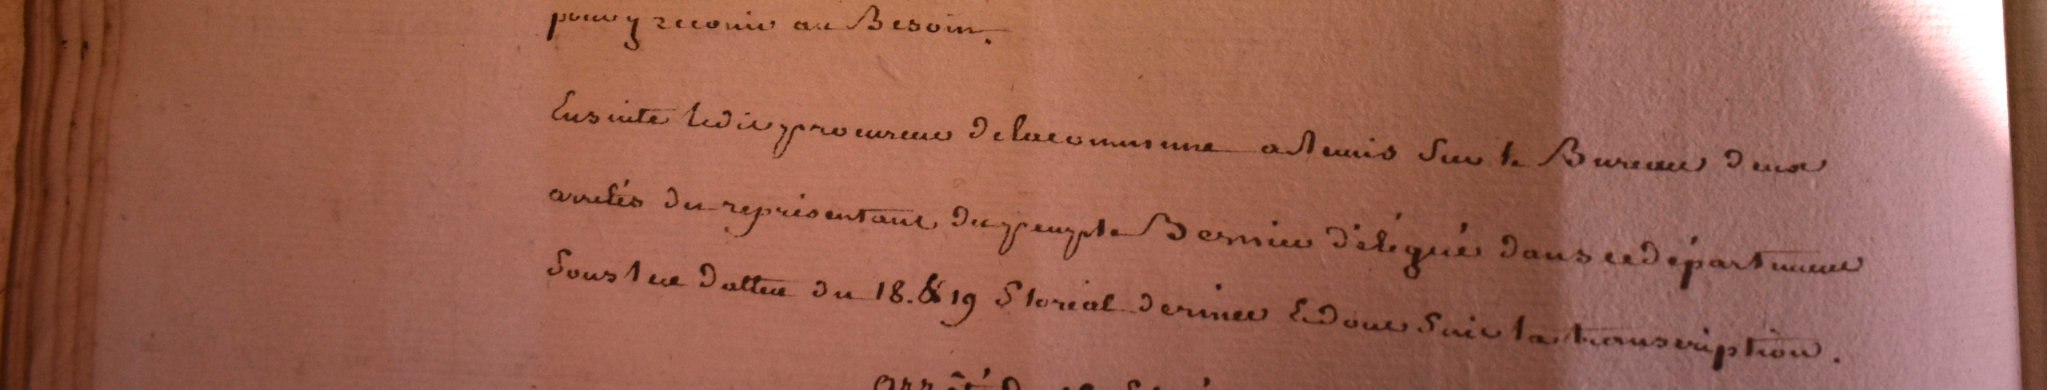 pour y recourir au Besoin.
Ensuite ledit procureur de la commune a Remis sur le Bureau deux
arretés du représentant du peuple Bernier délégué dans ce département
sous les dattes du 18. & 19 floréal dernier & dont suit la transcription.
arrêté du 18 floréal